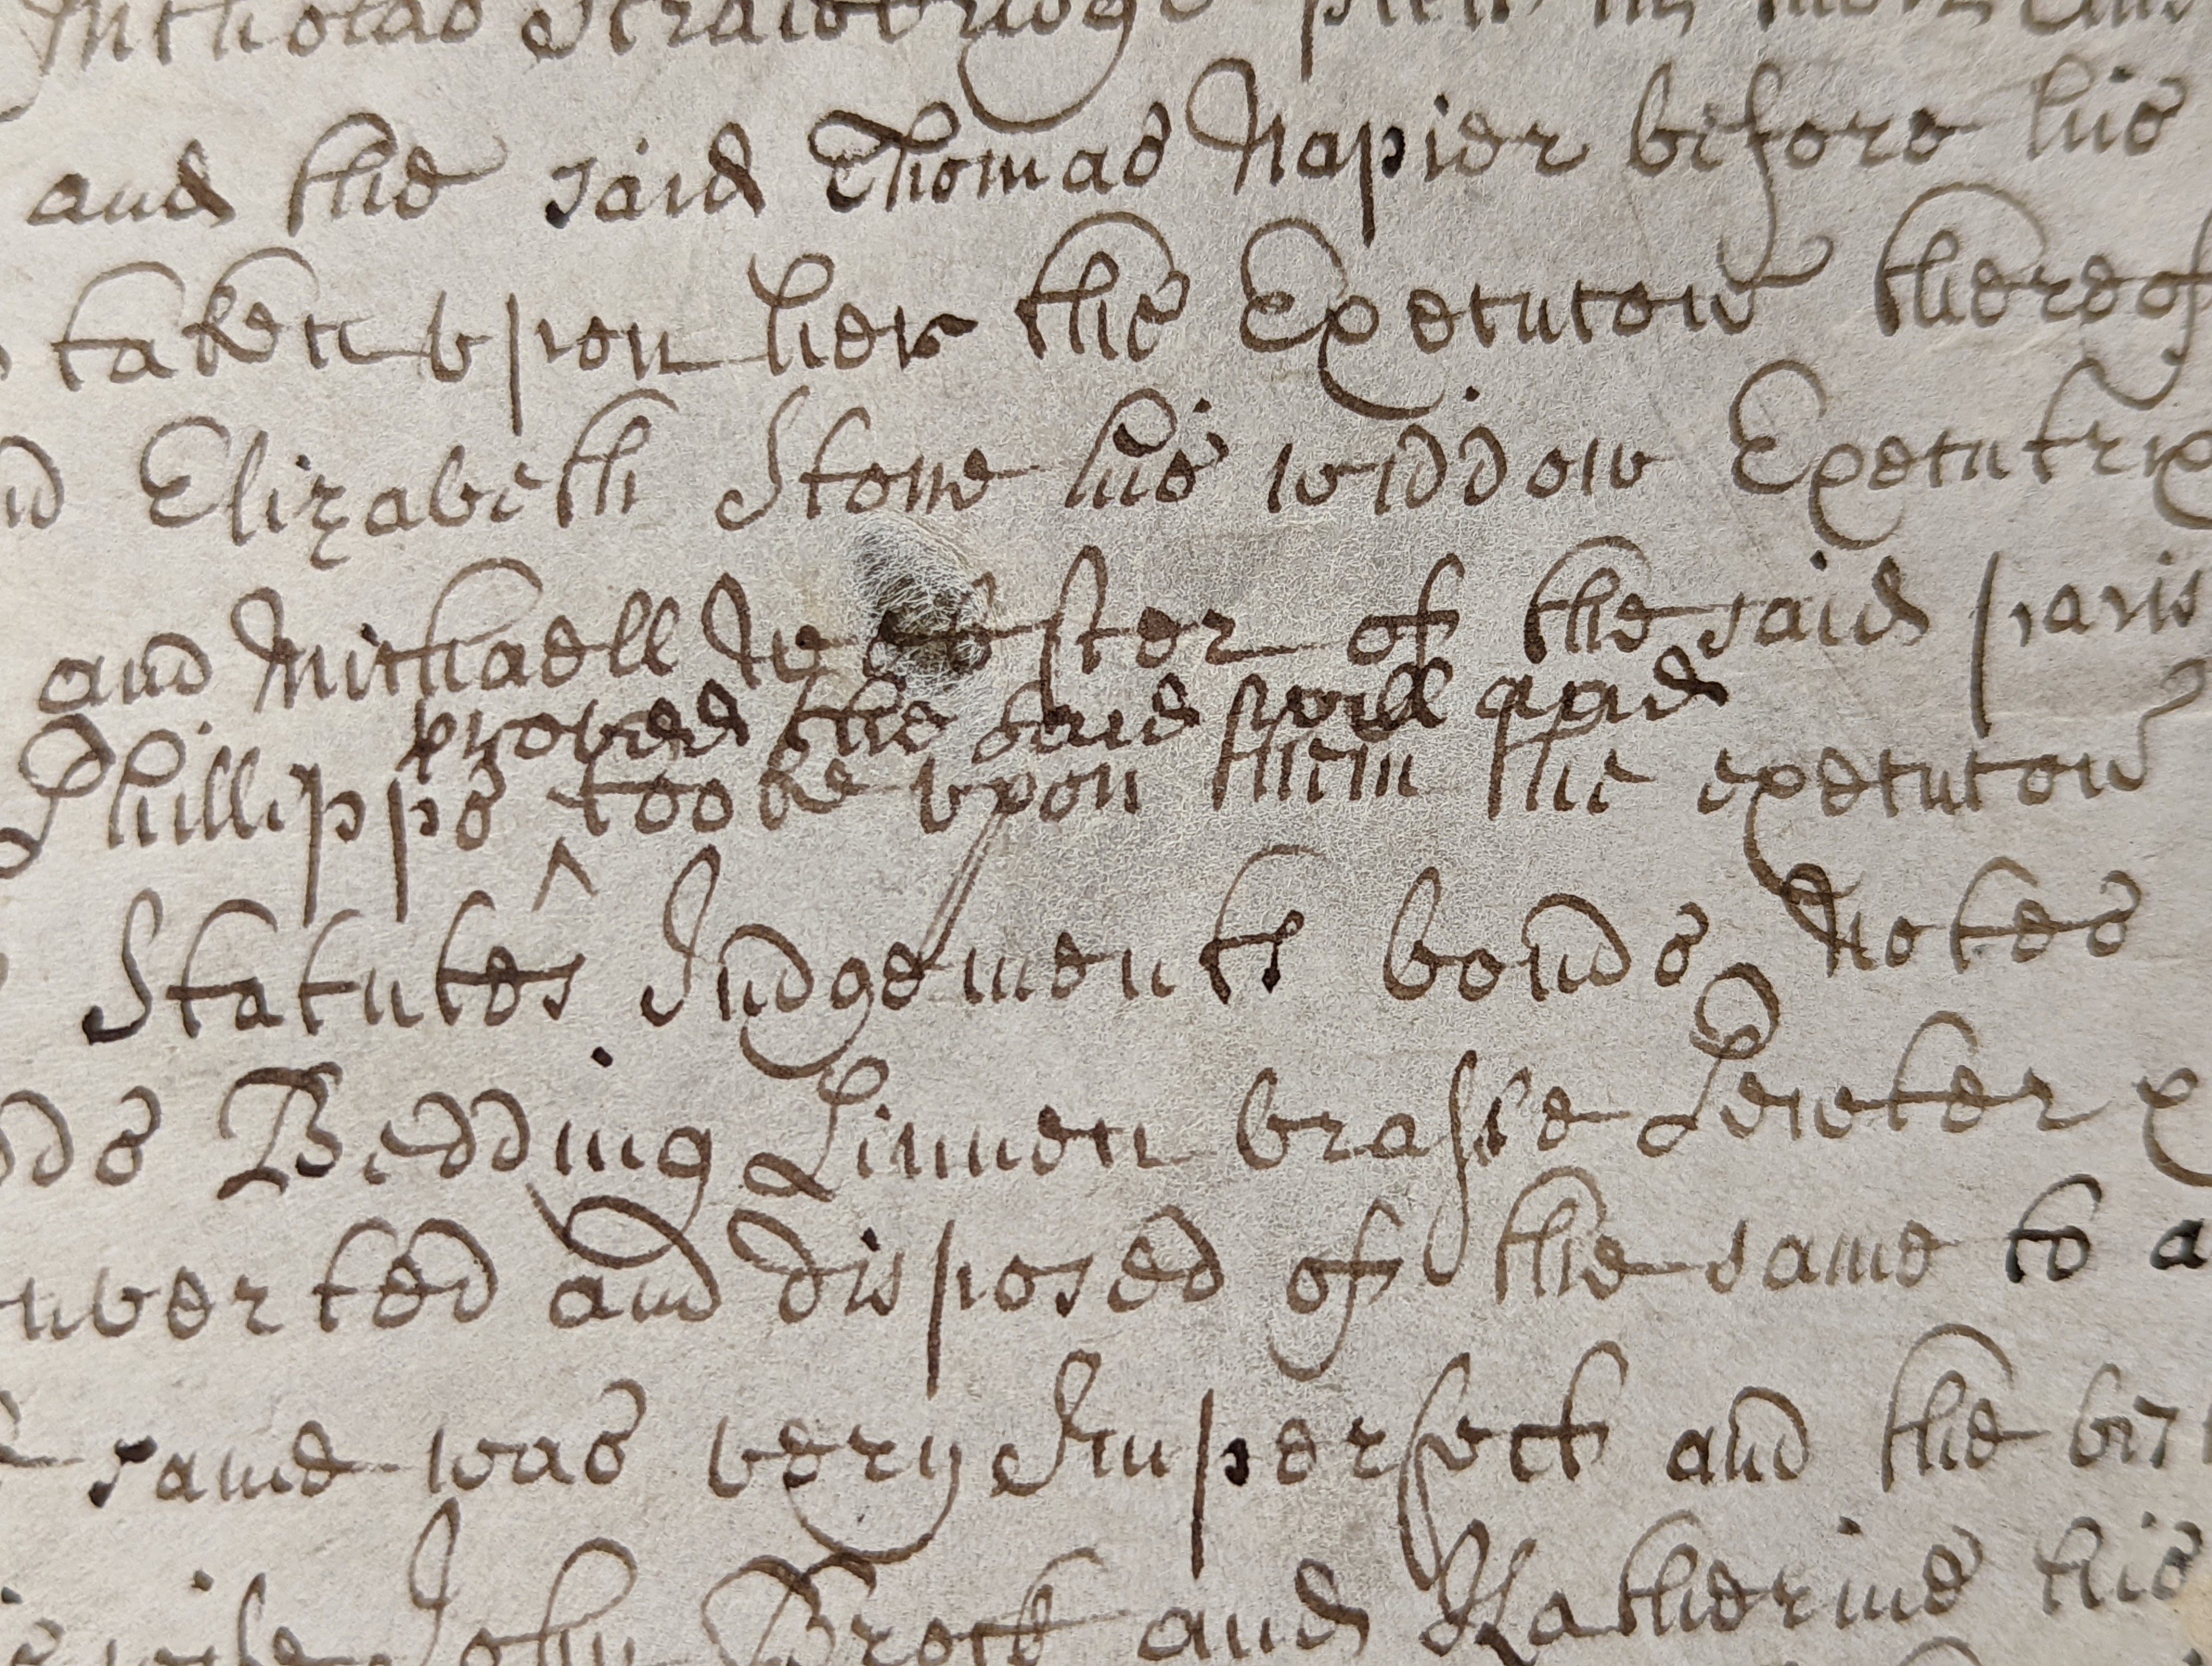 Nicholas Strawbridge
and the said Thomas Napier before his
taken vpon her the Executorꝑ thereof
Elizabeth Stone his widdow Executrix
and Michaell ster of the said paris
proved the said will and
Phillipps ^ tooke vpon them the executor
Statutes Judgements bonds Notes
Bedding Linnen brasse Pewter
nverted and disposed of the same to a
same was very Imperfect and the
John Brock and Katherine his